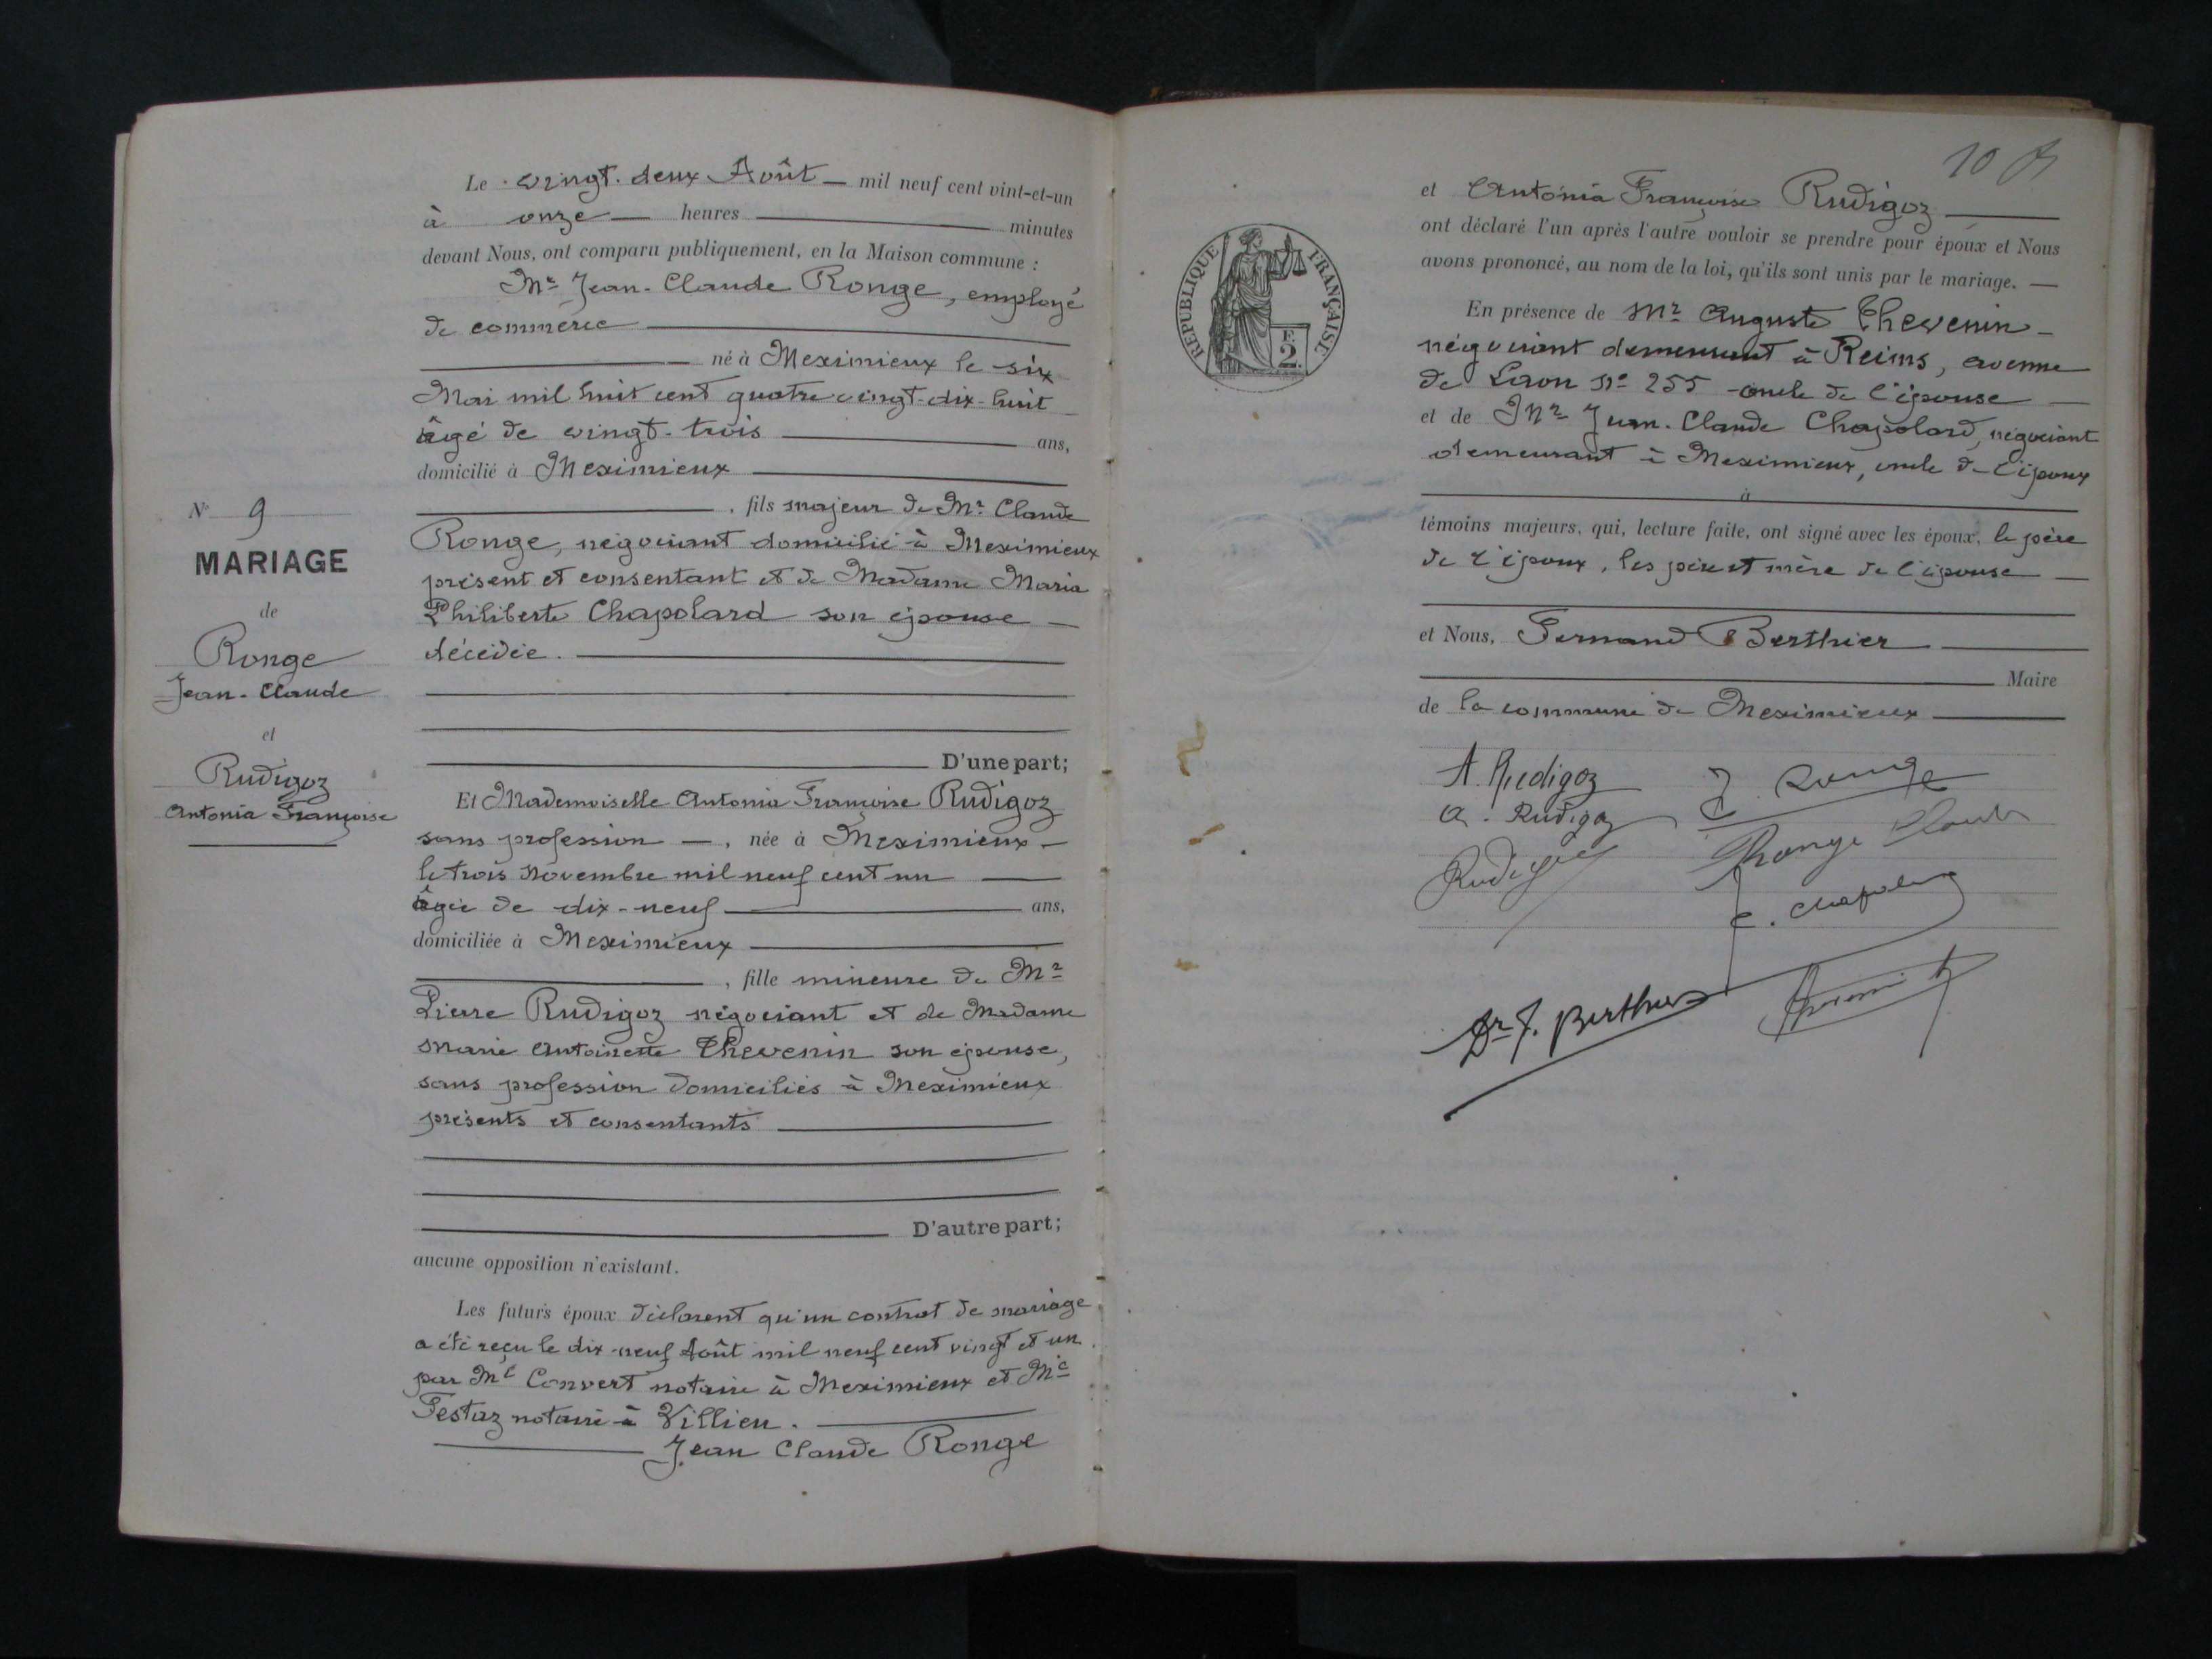 Le vingt-deux Août — mil neuf cent vint-et-un
à onze — heures minutes
devant Nous, ont comparu publiquement, en la Maison commune :
Mr Jean-Claude Ronge, employé
de commerce
né à Meximieux le six
Mai mil huit cent quatre vingt-dix-huit
âgé de vingt-trois ans,
domicilié à Meximieux
, fils majeur de Mr Claude
Ronge, négociant domicilié à Meximieux
présent et consentant et de Madame Maria
Philiberte Chapolard son épouse —
décédée.
D'une part;
Et Mademoiselle Antonia Françoise Rudigoz
sans profession —, née à Meximieux —
le trois Novembre mil neuf cent un
âgée de dix-neuf ans,
domiciliée à Meximieux
, fille mineure de Mr
Pierre Rudigoz négociant et de Madame
Marie Antoinette Thevenin son épouse,
sans profession domiciliés à Meximieux
présents et consentants
D'autre part;
aucune opposition n'existant.
Les futurs époux déclarent qu'un contrat de mariage
a été reçu le dix-neuf Août mil neuf cent vingt et un
par Me Convert notaire à Meximieux et Me
Festaz notaire à Villieu.
Jean Claude Ronge
No 9
MARIAGE
de
Ronge
Jean-Claude
et
Rudigoz
Antonia Françoise
10
REPUBLIQUE FRANÇAISE
F.
2.
et Antonia Françoise Rudigoz
ont déclaré l'un après l'autre vouloir se prendre pour époux et Nous
avons prononcé, au nom de la loi, qu'ils sont unis par le mariage. —
En présence de Mr Auguste Thevenin —
négociant demeurant à Reims, avenue
de Laon no 255 oncle de l'épouse —
et de Mr Jean-Claude Chapolard, négociant
demeurant à Meximieux, oncle de l'époux
à
témoins majeurs, qui, lecture faite, ont signé avec les époux, le père
de l'époux, les père et mère de l'épouse —
et Nous, Fernand Berthier
Maire
de la commune de Meximieux
A. Rudigoz J. Ronge
A. Rudigoz
Rudigoz Ronge Claude
C. Chapolard
Dr F. Berthier